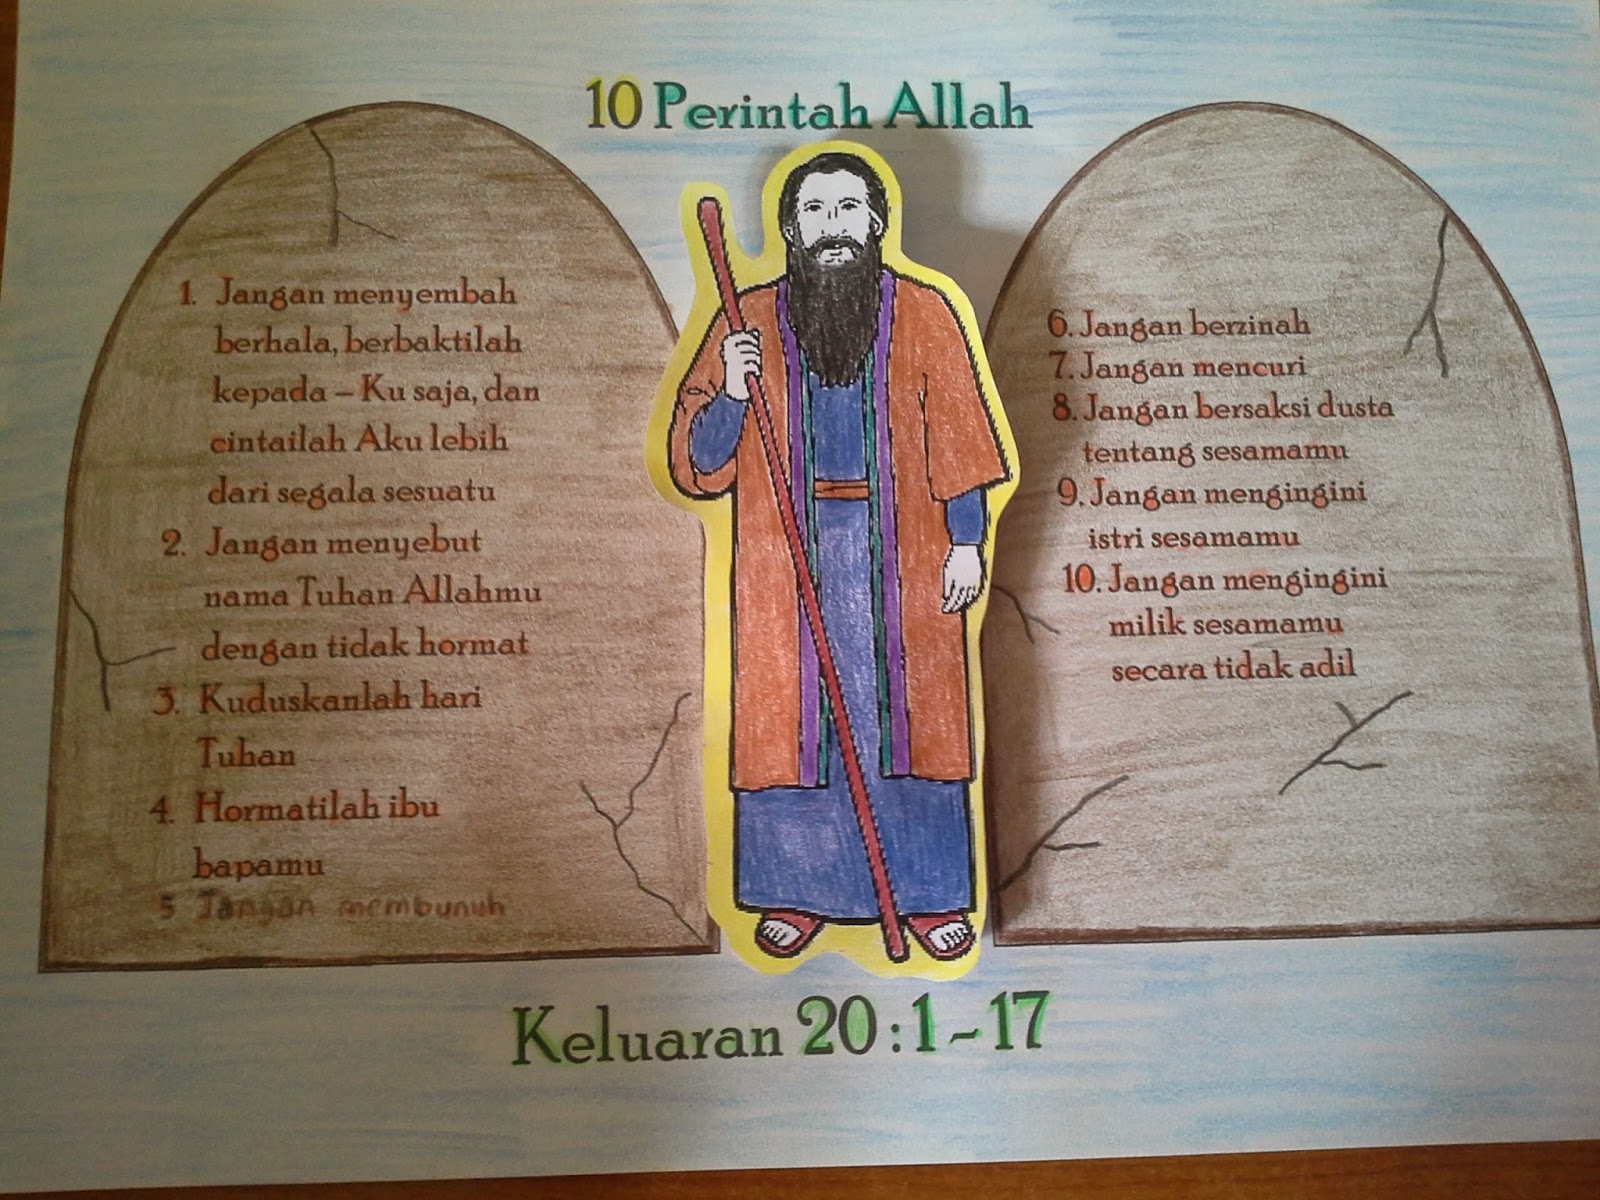 10 Perintah Allah
1. Jangan menyembah
berhala, berbaktilah
kepada – Ku saja, dan
cintailah Aku lebih
dari segala sesuatu
2. Jangan menyebut
nama Tuhan Allahmu
dengan tidak hormat
3. Kuduskanlah hari
Tuhan
4. Hormatilah ibu
bapamu
5 Jangan membunuh
6. Jangan berzinah
7. Jangan mencuri
8. Jangan bersaksi dusta
tentang sesamamu
9. Jangan mengingini
istri sesamamu
10. Jangan mengingini
milik sesamamu
secara tidak adil
Keluaran 20 : 1 – 17